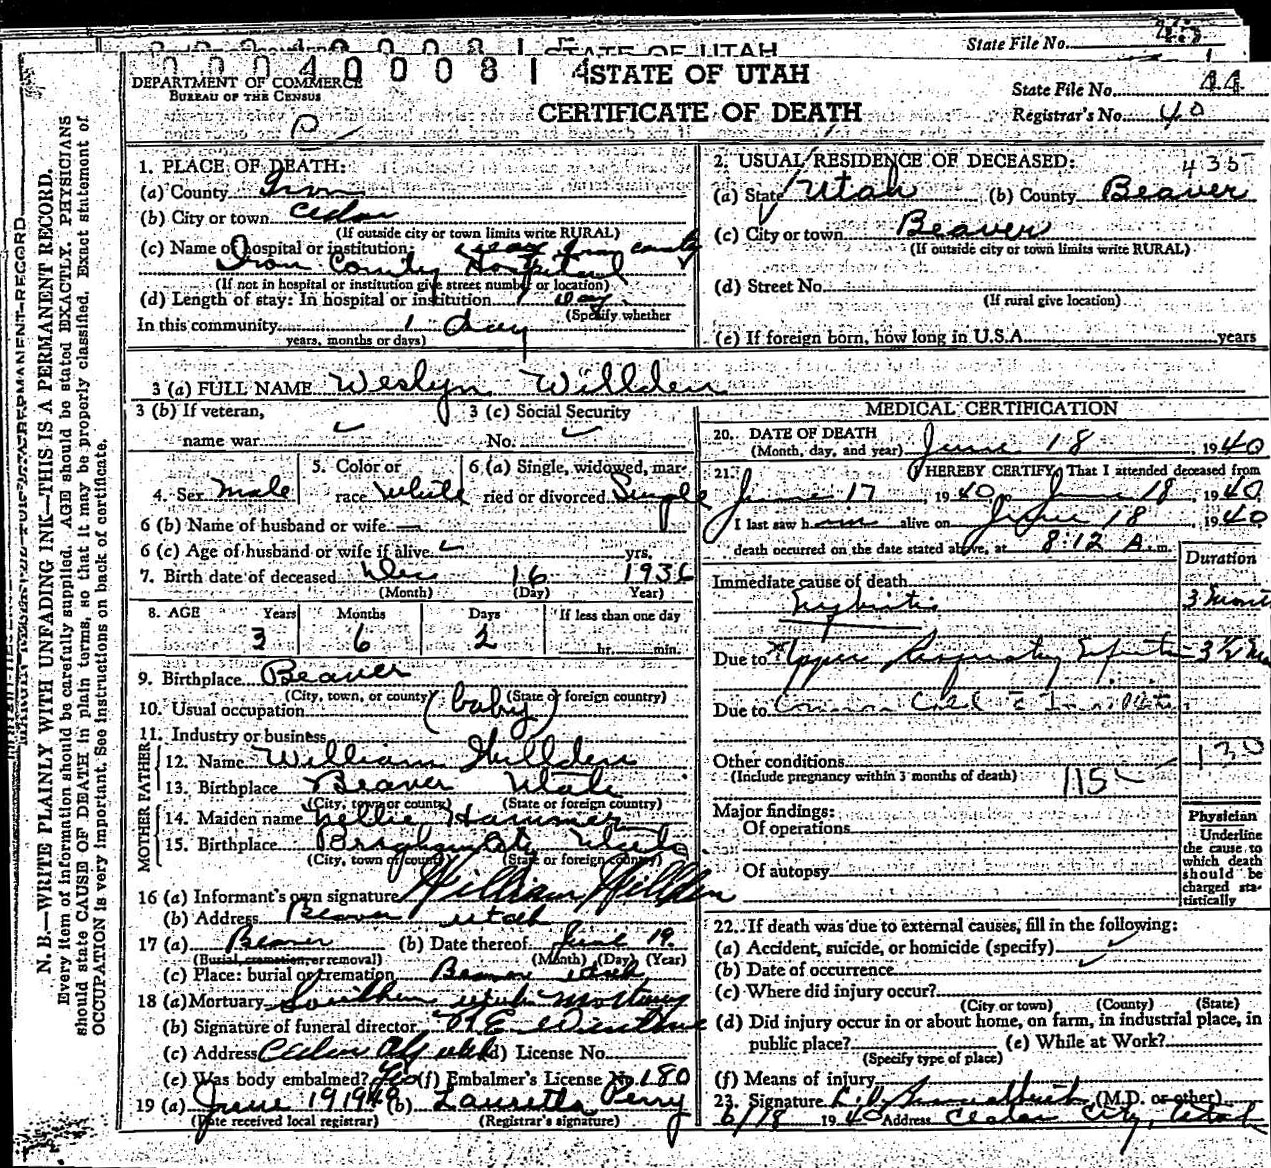 State File No.
0 0 0 4 0 0 0 8 1 4
STATE OF UTAH
DEPARTMENT OF COMMERCE
BUREAU OF THE CENSUS
STATE OF UTAH
CERTIFICATE OF DEATH
State File No. 44
Registrar's No. 40
N. B.—WRITE PLAINLY WITH UNFADING INK—THIS IS A PERMANENT RECORD.
Every item of information should be carefully supplied. AGE should be stated EXACTLY. PHYSICIANS
should state CAUSE OF DEATH in plain terms, so that it may be properly classified. Exact statement of
OCCUPATION is very important. See instructions on back of certificate.
1. PLACE OF DEATH:
(a) County Iron
(b) City or town Cedar
(If outside city or town limits write RURAL)
(c) Name of hospital or institution: Iron County
Iron County Hospital
(If not in hospital or institution give street number or location)
(d) Length of stay: In hospital or institution 1 day
(Specify whether
In this community 1 day
years, months or days)
2. USUAL RESIDENCE OF DECEASED: 435
(a) State Utah (b) County Beaver
(c) City or town Beaver
(If outside city or town limits write RURAL)
(d) Street No.
(If rural give location)
(e) If foreign born, how long in U.S.A. years
3 (a) FULL NAME Weslyn Willden
3 (b) If veteran, name war
3 (c) Social Security No.
4. Sex Male
5. Color or race White
6 (a) Single, widowed, married or divorced Single
6 (b) Name of husband or wife
6 (c) Age of husband or wife if alive yrs.
7. Birth date of deceased Dec 16 1936
(Month) (Day) (Year)
8. AGE Years Months Days If less than one day
3 6 2 hr. min.
9. Birthplace Beaver
(City, town, or county) (State or foreign country)
10. Usual occupation (baby)
11. Industry or business
FATHER
12. Name William Willden
13. Birthplace Beaver Utah
(City, town or county) (State or foreign country)
MOTHER
14. Maiden name Nellie Hammer
15. Birthplace Brigham City Utah
(City, town or county) (State or foreign country)
16 (a) Informant's own signature William Willden
(b) Address Beaver Utah
17 (a) Beaver (b) Date thereof June 19
(Burial, cremation, or removal) (Month) (Day) (Year)
(c) Place: burial or cremation Beaver Utah
18 (a) Mortuary Southern Utah Mortuary
(b) Signature of funeral director
(c) Address Cedar City Utah (d) License No.
(e) Was body embalmed? Yes (f) Embalmer's License No. 180
19 (a) June 19 1940 (b) Lauretta Perry
(Date received local registrar) (Registrar's signature)
MEDICAL CERTIFICATION
20. DATE OF DEATH
(Month, day, and year) June 18, 1940
21. I HEREBY CERTIFY, That I attended deceased from
June 17, 1940, to June 18, 1940
I last saw him alive on June 18, 1940
death occurred on the date stated above, at 8:12 A.m.
Duration
Immediate cause of death
Nephritis
Due to Upper Respiratory Infection
Due to Common Cold
Other conditions 130
(Include pregnancy within 3 months of death) 115
Major findings:
Of operations
Of autopsy
Physician
Underline
the cause to
which death
should be
charged sta-
tistically
22. If death was due to external causes, fill in the following:
(a) Accident, suicide, or homicide (specify)
(b) Date of occurrence
(c) Where did injury occur?
(City or town) (County) (State)
(d) Did injury occur in or about home, on farm, in industrial place, in
public place? (e) While at Work?
(Specify type of place)
(f) Means of injury
23. Signature (M.D. or other)
6/18 1940 Address Cedar City, Utah